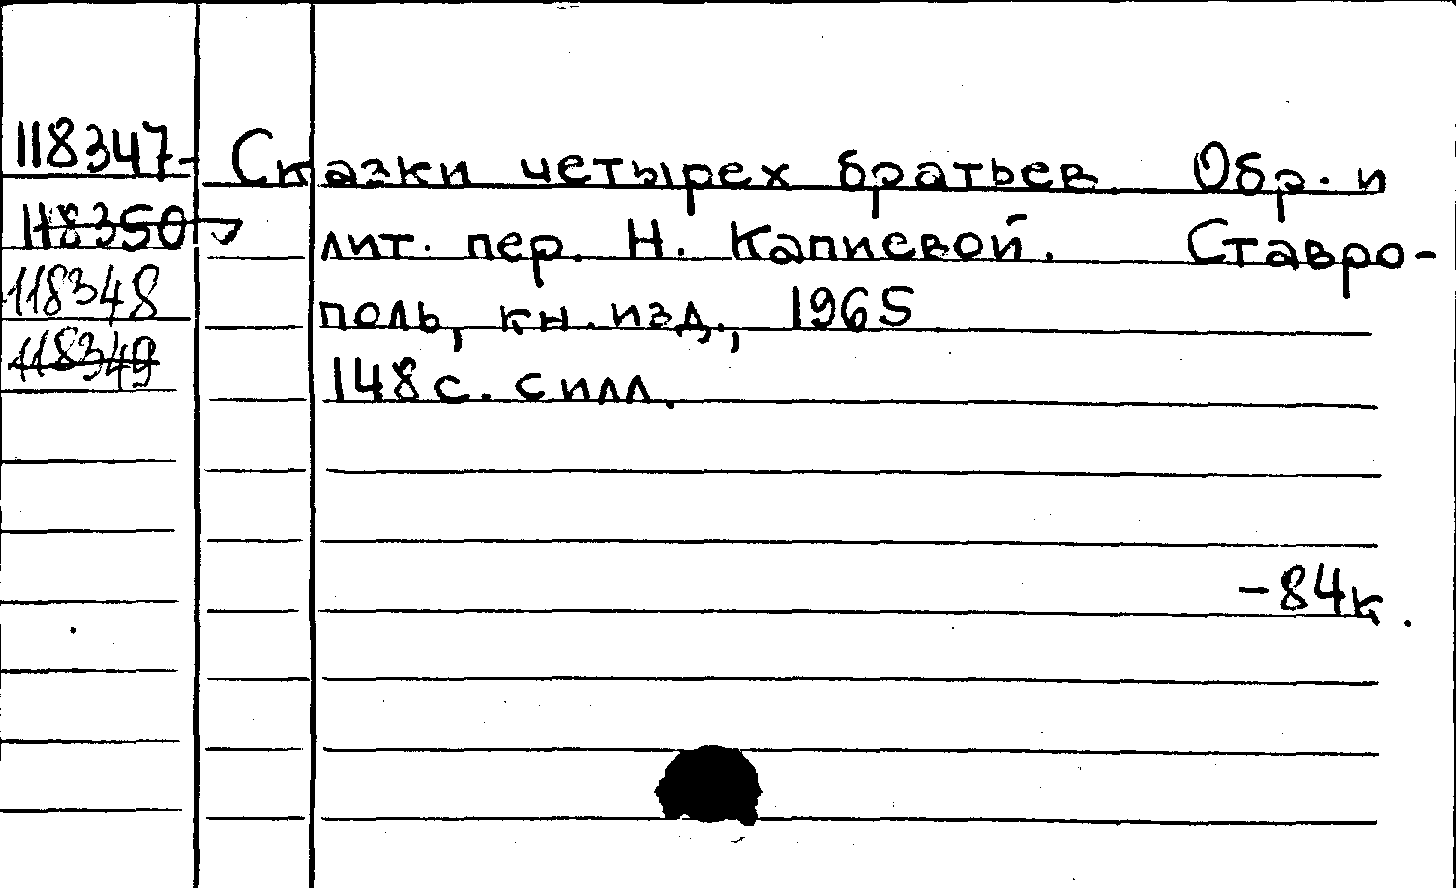 118347- Сказки четырех братьев. Обр. и
118350 лит. пер. Н. Капиевой. Ставро-
118348 поль, кн. изд., 1965
118349 148 с. с илл.
-84к.